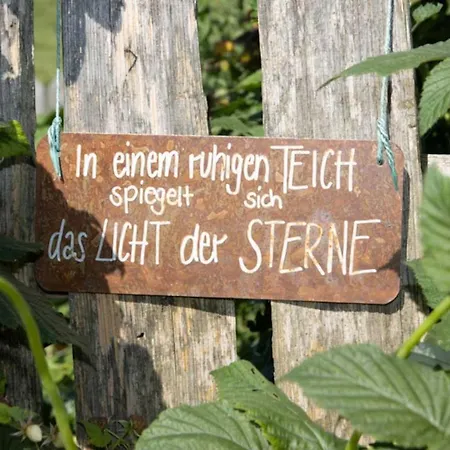 In einem ruhigen TEICH
spiegelt sich
das LICHT der STERNE